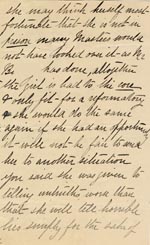 she may think herself most
fortunate that she is not in
prison many Masters would
not have looked on it as Mr
B has done, altogether
the girl is bad to the core
& only fit for a reformatory
& she would do the same
again if she had an opportunity
it will not be fair to send
her to another situation
you said she was given to
telling untruths worse than
that she will tell horrible
lies simply for the sake of